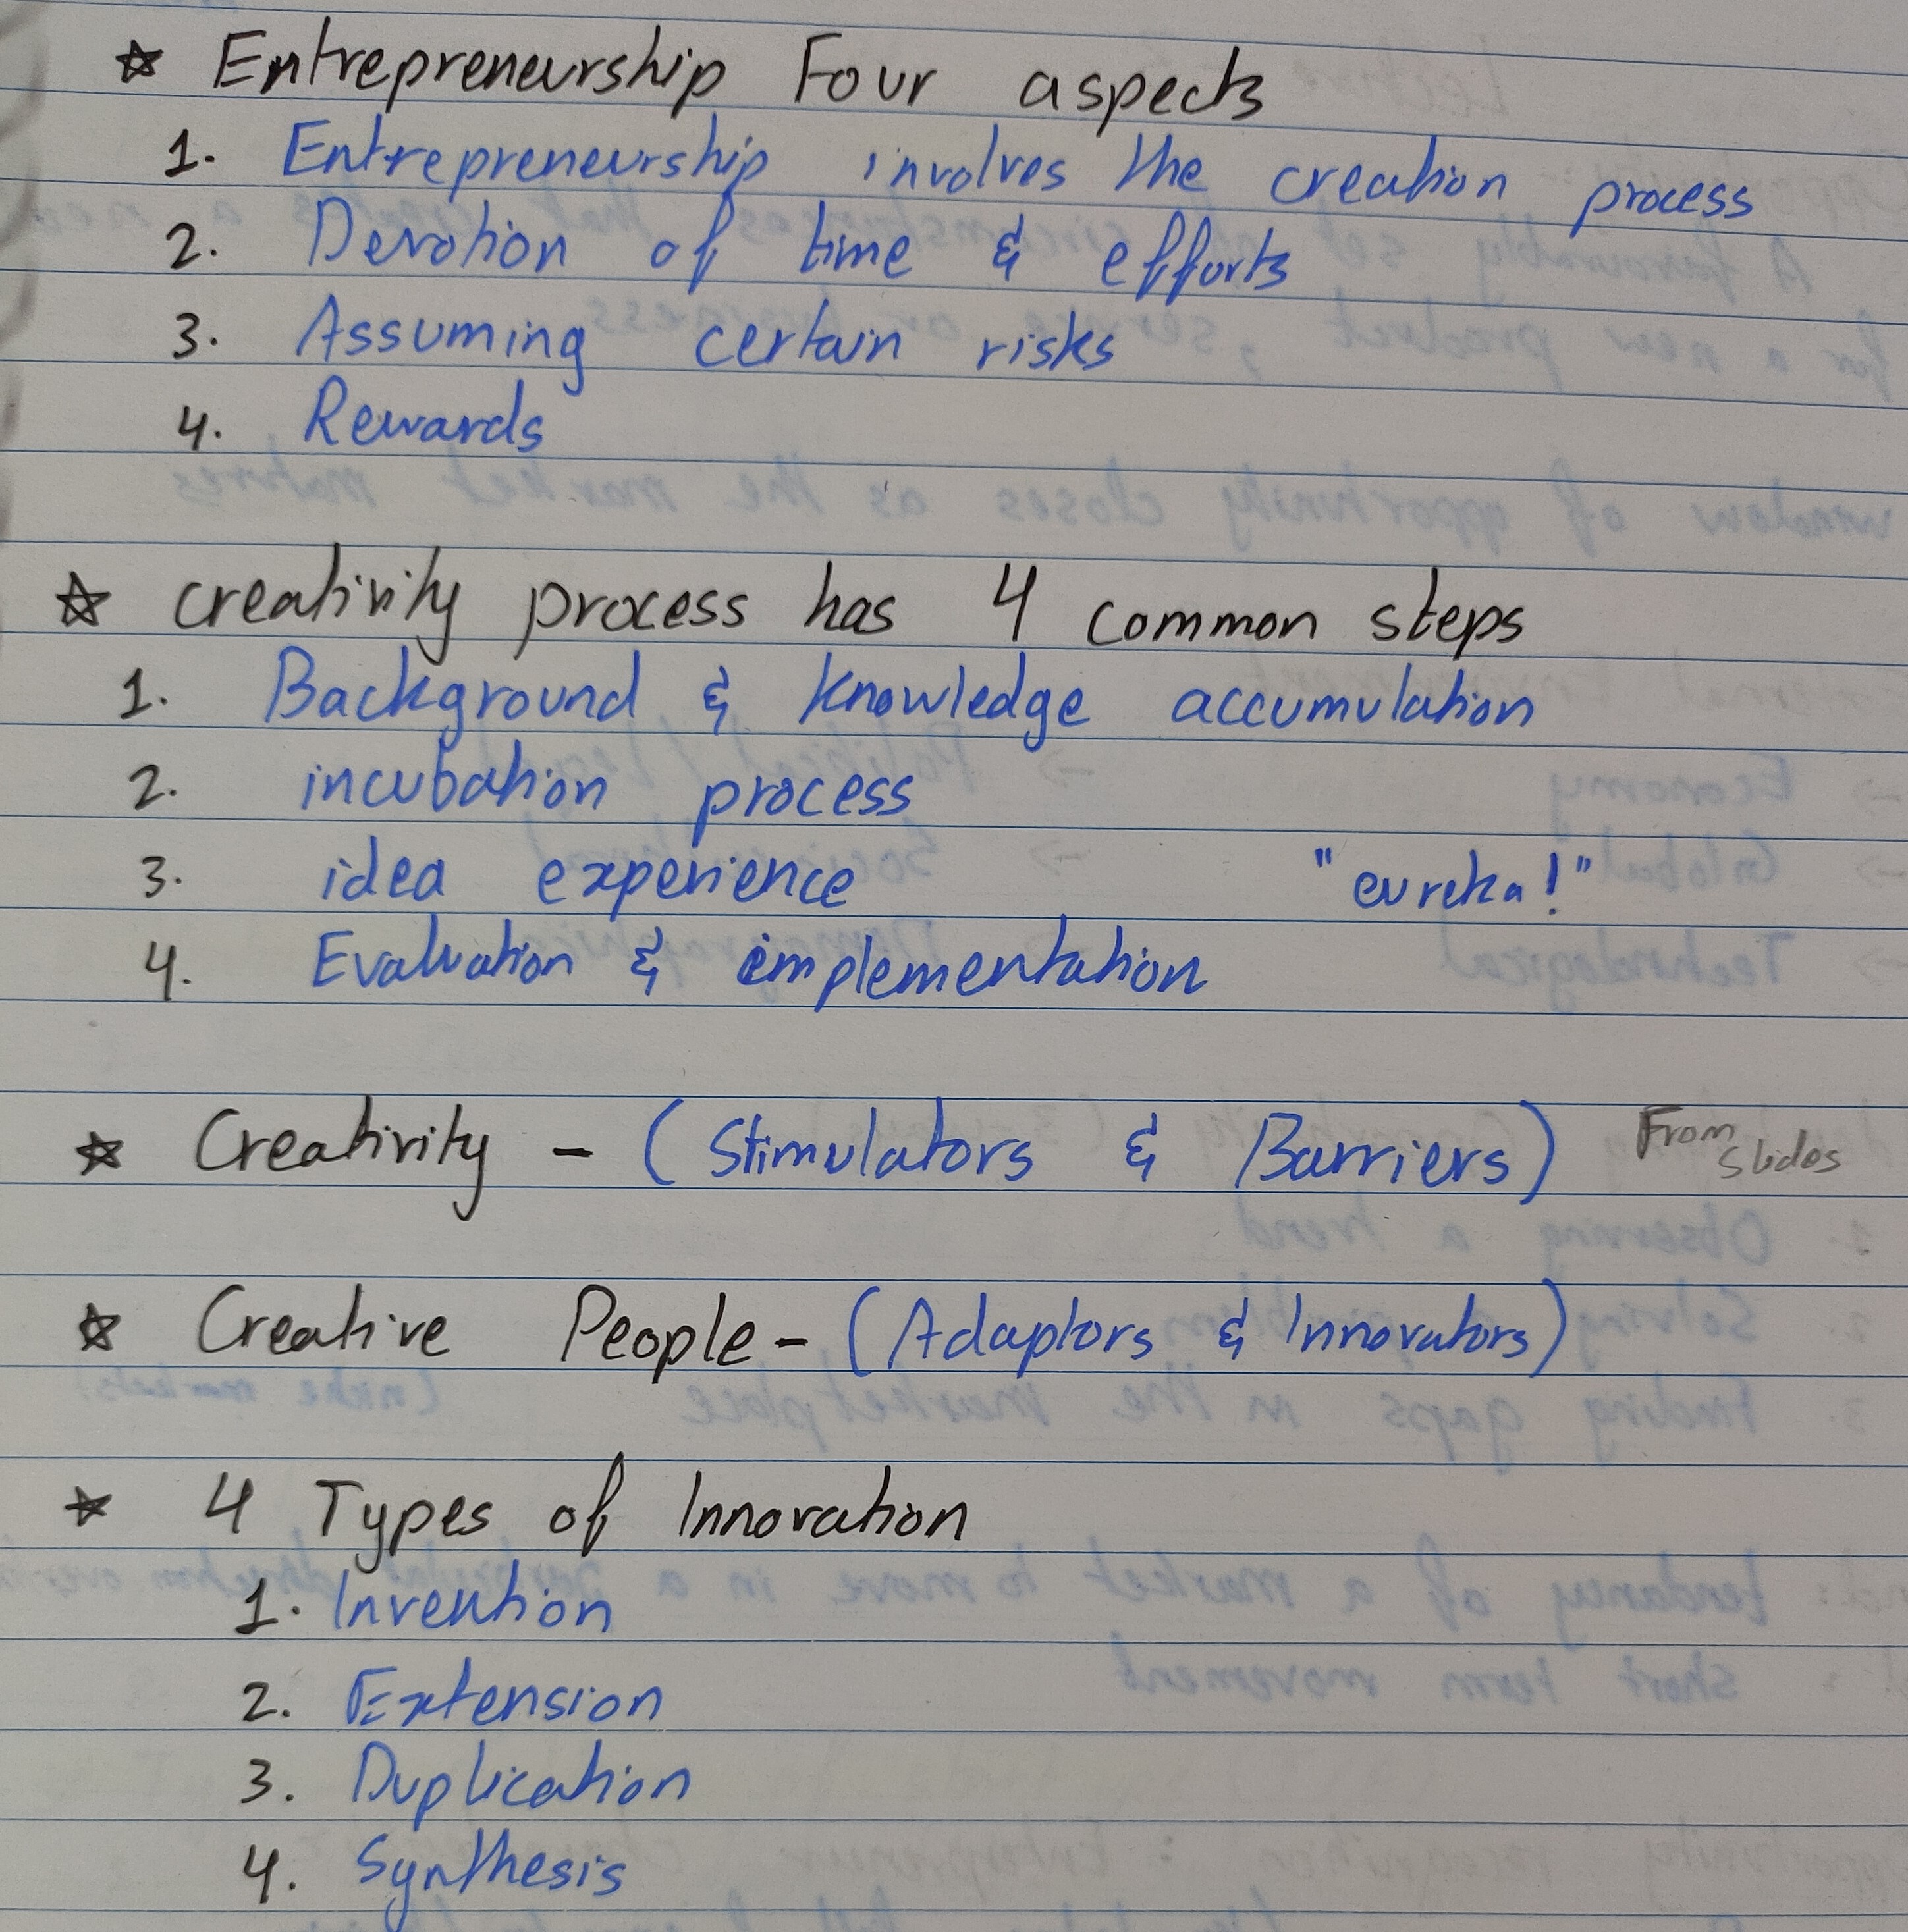 ☆ Entrepreneurship Four aspects
1. Entrepreneurship involves the creation process
2. Devotion of time & efforts
3. Assuming certain risks
4. Rewards
☆ creativity process has 4 common steps
1. Background & knowledge accumulation
2. incubation process
3. idea experience "eureka!"
4. Evaluation & implementation
☆ Creativity - (Stimulators & Barriers) From slides
☆ Creative People - (Adaptors & Innovators)
☆ 4 Types of Innovation
1. Invention
2. Extension
3. Duplication
4. Synthesis